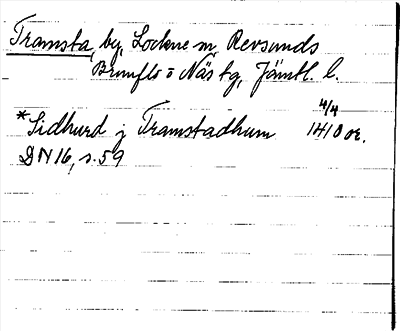 Tramsta, by, Lockne sn, Revsunds
Brunflo o Näs tg, Jämtl. l.
*Sidhurd j Tramstadhum 4/4 1410 or.
DN 16, s. 59